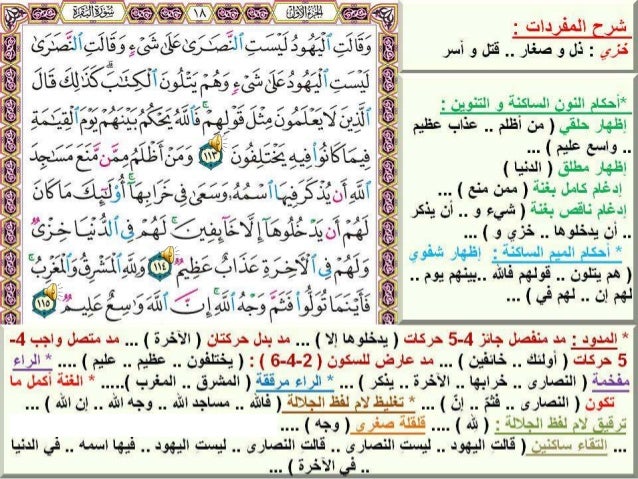 الجزء الأول
١٨
سورة البقرة
وَقَالَتِ ٱلْيَهُودُ لَيْسَتِ ٱلنَّصَـٰرَىٰ عَلَىٰ شَىْءٍ وَقَالَتِ ٱلنَّصَـٰرَىٰ
لَيْسَتِ ٱلْيَهُودُ عَلَىٰ شَىْءٍ وَهُمْ يَتْلُونَ ٱلْكِتَـٰبَ ۗ كَذَٰلِكَ قَالَ
ٱلَّذِينَ لَا يَعْلَمُونَ مِثْلَ قَوْلِهِمْ ۚ فَٱللَّهُ يَحْكُمُ بَيْنَهُمْ يَوْمَ ٱلْقِيَـٰمَةِ
فِيمَا كَانُوا۟ فِيهِ يَخْتَلِفُونَ ١١٣ وَمَنْ أَظْلَمُ مِمَّن مَّنَعَ مَسَـٰجِدَ
ٱللَّهِ أَن يُذْكَرَ فِيهَا ٱسْمُهُۥ وَسَعَىٰ فِى خَرَابِهَآ ۚ أُو۟لَـٰٓئِكَ مَا كَانَ
لَهُمْ أَن يَدْخُلُوهَآ إِلَّا خَآئِفِينَ ۚ لَهُمْ فِى ٱلدُّنْيَا خِزْىٌ
وَلَهُمْ فِى ٱلْـَٔاخِرَةِ عَذَابٌ عَظِيمٌ ١١٤ وَلِلَّهِ ٱلْمَشْرِقُ وَٱلْمَغْرِبُ ۚ
فَأَيْنَمَا تُوَلُّوا۟ فَثَمَّ وَجْهُ ٱللَّهِ ۚ إِنَّ ٱللَّهَ وَٰسِعٌ عَلِيمٌ ١١٥
شرح المفردات :
خزي : ذل و صغار .. قتل و أسر
*أحكام النون الساكنة و التنوين :
إظهار حلقي ( من أظلم .. عذاب عظيم
.. واسع عليم ) ...
إظهار مطلق ( الدنيا )
إدغام كامل بغنة ( ممن منع ) ...
إدغام ناقص بغنة ( شيء و .. أن يذكر
.. أن يدخلوها .. خزي و ) ...
* أحكام الميم الساكنة : إظهار شفوي
( هم يتلون .. قولهم فالله ..بينهم يوم ..
لهم إن .. لهم في ) ...
* المدود : مد منفصل جائز 4-5 حركات ( يدخلوها إلا ) ... مد بدل حركتان ( الآخرة ) ... مد متصل واجب 4-
5 حركات ( أولئك .. خائفين ) ... مد عارض للسكون ( 2-4-6 ) : ( يختلفون .. عظيم .. عليم ) .... * الراء
مفخمة ( النصارى .. خرابها .. الآخرة .. يذكر ) ... * الراء مرققة ( المشرق .. المغرب )..... * الغنة أكمل ما
تكون ( النصارى .. فثمّ .. إنّ ) ... * تغليظ لام لفظ الجلالة ( فالله .. مساجد الله .. وجه الله .. إن الله ) ...
ترقيق لام لفظ الجلالة : ( لله ) .... قلقلة صغرى ( وجه ) ....
... التقاء ساكنين ( قالت اليهود .. ليست النصارى .. قالت النصارى .. ليست اليهود .. فيها اسمه .. في الدنيا
.. في الآخرة ) ...